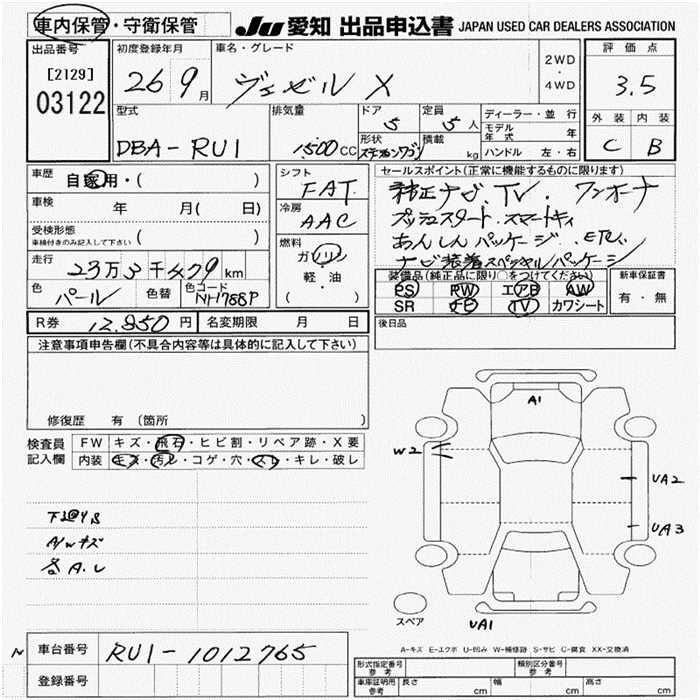 車内保管・守衛保管
JU 愛知 出品申込書 JAPAN USED CAR DEALERS ASSOCIATION
出品番号
[2129]
03122
初度登録年月
26 9月
車名・グレード
ヴェゼル X
2WD
・
4WD
評価点
3.5
外装 内装
C B
型式
DBA-RU1
排気量
1500CC
ドア
5
定員
5人
形状
ステーションワゴン
積載
kg
ディーラー・並行
モデル年式 年
ハンドル 左・右
車歴
自家用・( )
車検 年 月( 日)
受検形態
車検付きのみ記入して下さい ( )
走行
23万3千 79km
色 パール 色替 色コード NH788P
シフト
FAT
冷房
AAC
燃料
ガソリン
軽・油
( )
セールスポイント(正常に機能するものに限ります)
純正ナビ、TV、ワンオーナ
プッシュスタート、スマートキィ
あんしんパッケージ、ETC、
ナビ装着スペシャルパッケージ
装備品(純正品に限り○をつけてください)
PS PW エアB AW
SR TV カワシート
新車保証書
有・無
R券 12,850円 名変期限 月 日
後日品
注意事項申告欄(不具合内容等は具体的に記入して下さい)
修復歴 有 (箇所 )
検査員記入欄
FW キズ・飛石・ヒビ割・リペア跡・X要
内装 キズ・汚レ・コゲ・穴・スレ・キレ・破レ
A/Wキズ
各A.U
A1
W2
UA2
UA3
UA1
スペア
A-キズ E-エクボ U-凹み W-補修跡 S-サビ C-腐食 XX-交換済
N
車台番号 RU1-1012765
登録番号
形式指定番号
参考
類別区分番号
参考
車庫証明用
参考
長さ cm 幅 cm 高さ cm